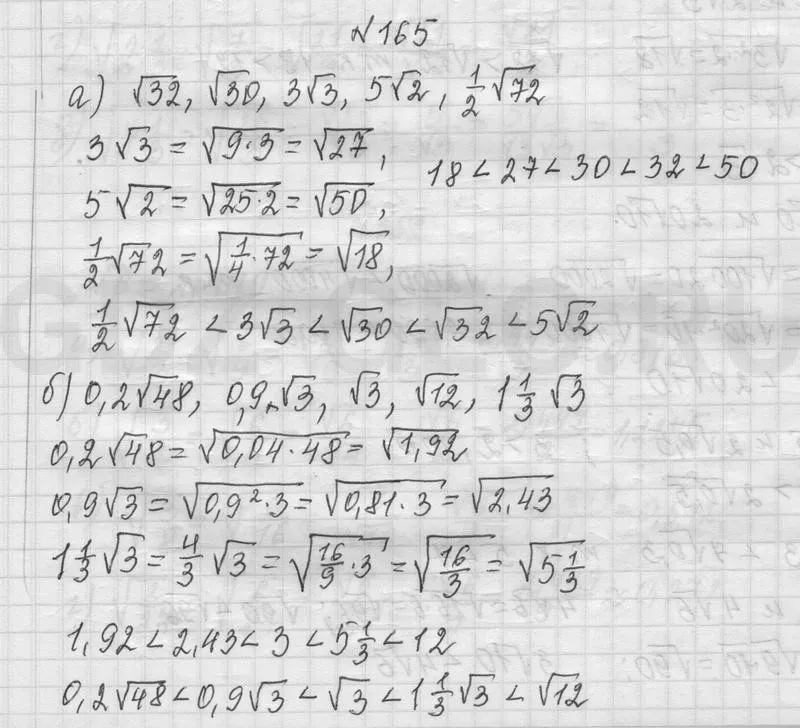 №165
а) √32, √30, 3√3, 5√2, 1/2 √72
3√3 = √(9·3) = √27,
18 < 27 < 30 < 32 < 50
5√2 = √(25·2) = √50,
1/2 √72 = √(1/4 · 72) = √18,
1/2 √72 < 3√3 < √30 < √32 < 5√2
б) 0,2√48, 0,9√3, √3, √12, 1 1/3 √3
0,2√48 = √(0,04·48) = √1,92
0,9√3 = √(0,9²·3) = √(0,81·3) = √2,43
1 1/3 √3 = 4/3 √3 = √(16/9 · 3) = √(16/3) = √(5 1/3)
1,92 < 2,43 < 3 < 5 1/3 < 12
0,2√48 < 0,9√3 < √3 < 1 1/3 √3 < √12